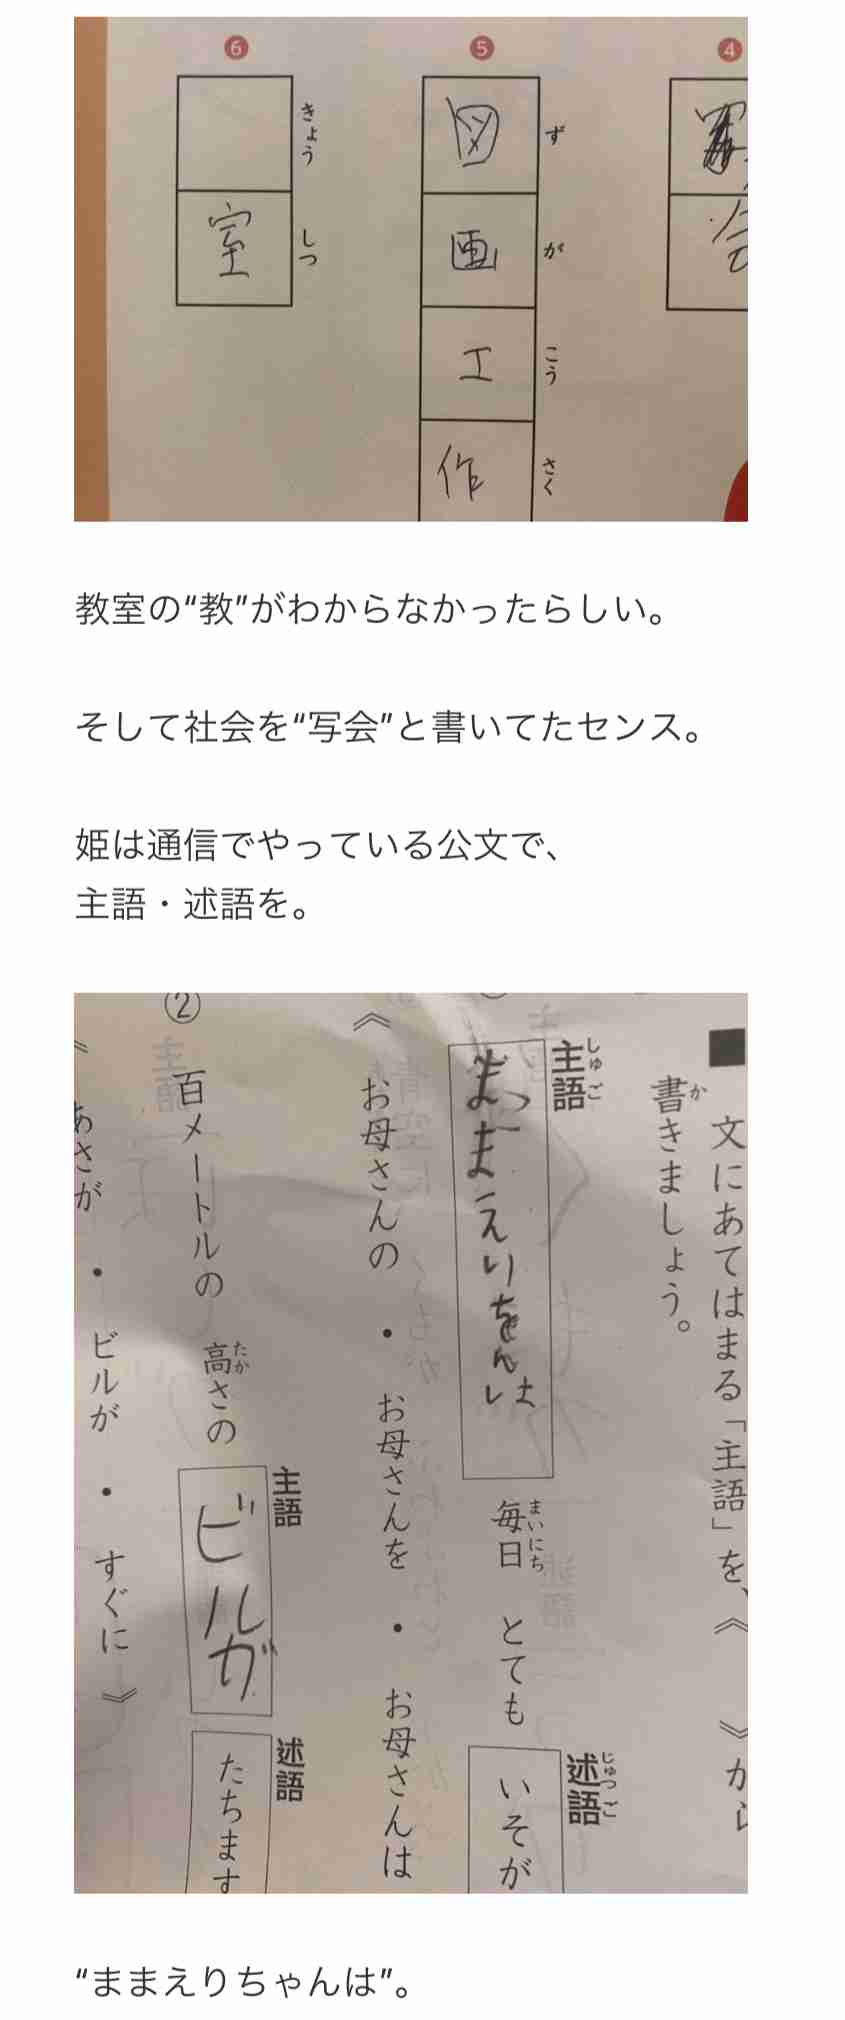 ④
会
⑤
図画工作
ずがこうさく
⑥
室
きょうしつ
教室の“教”がわからなかったらしい。
そして社会を“写会”と書いてたセンス。
姫は通信でやっている公文で、
主語・述語を。
■ 文にあてはまる「主語」を、《 》から
書きましょう。
か
主語
しゅご
毎日 とても
まいにち
述語
じゅつご
いそが
《お母さんの ・ お母さんを ・ お母さんは
②
百メートルの 高さの
たか
主語
ビルが
述語
たちます
《あさが ・ ビルが ・ すぐに》
“ままえりちゃんは”。